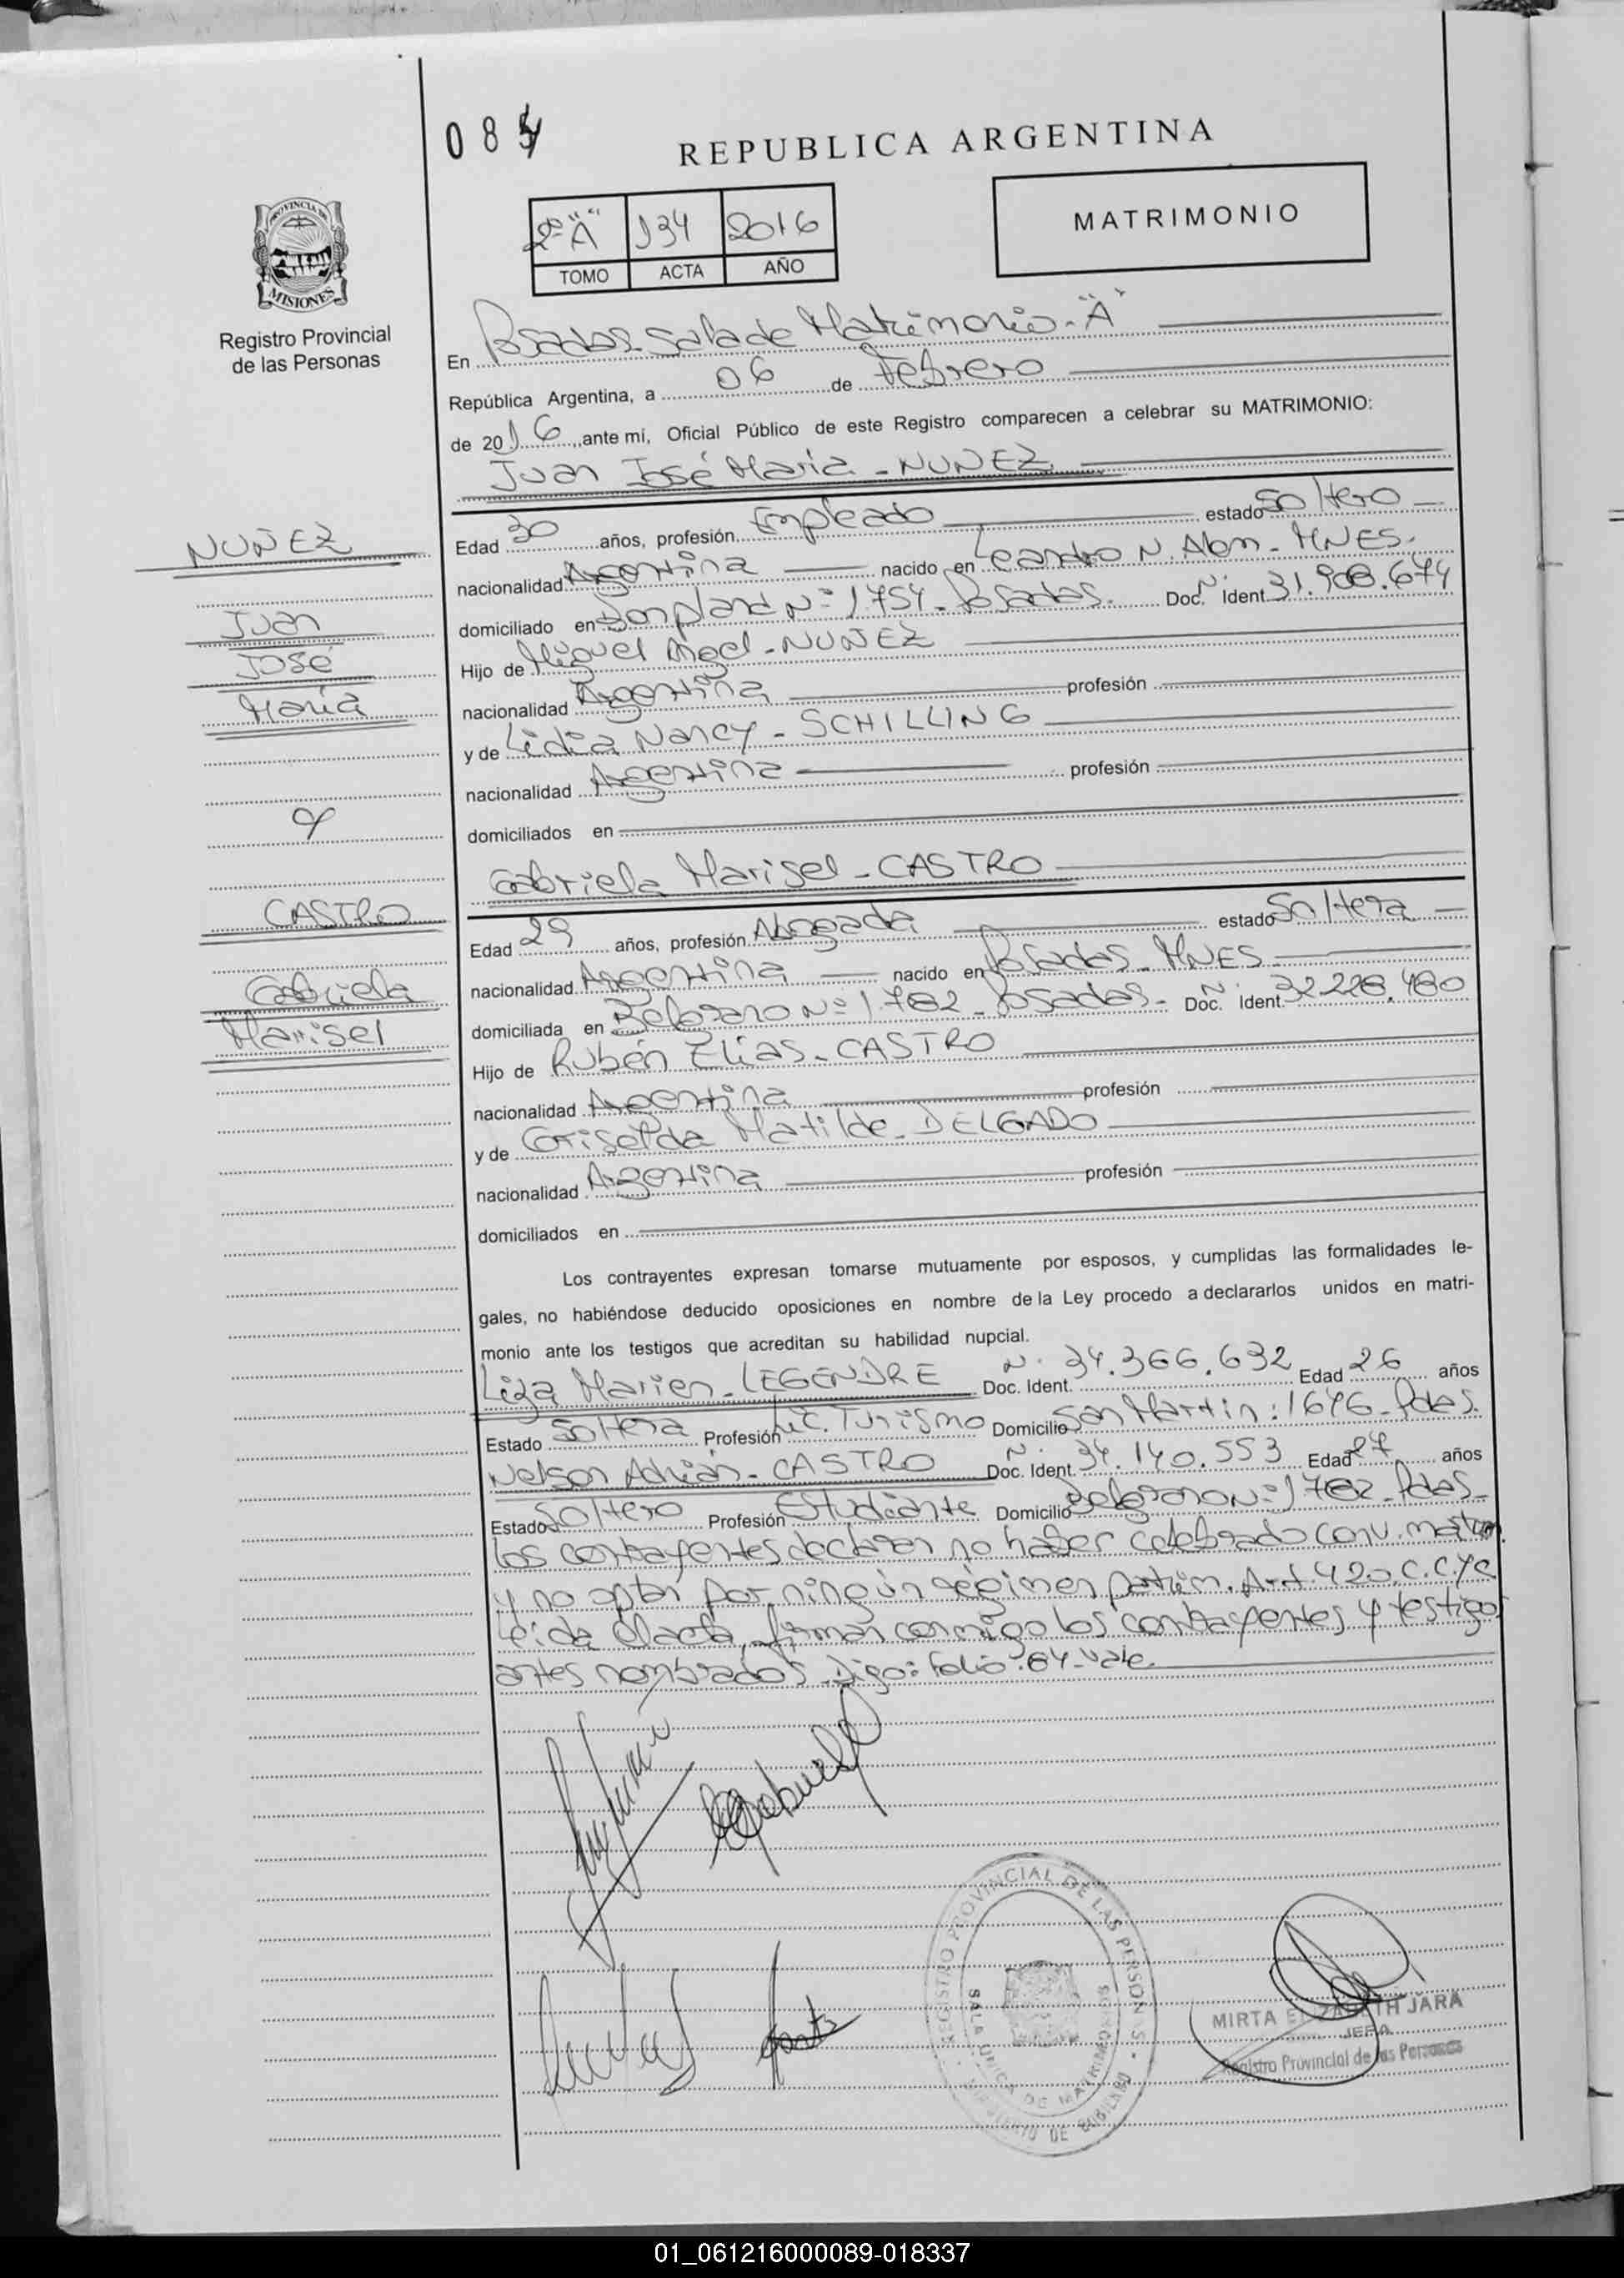 084
REPUBLICA ARGENTINA
PROVINCIA DE
MISIONES
Registro Provincial
de las Personas
2º "A" 134 2016
TOMO ACTA AÑO
MATRIMONIO
En Posadas-Sala de Matrimonio-"A"
República Argentina, a 06 de Febrero
de 2016, ante mí, Oficial Público de este Registro comparecen a celebrar su MATRIMONIO:
Juan José María - NUÑEZ
NUÑEZ
Juan
José
María
Edad 30 años, profesión Empleado estado Soltero
nacionalidad Argentina nacido en Leandro N. Alem - MNES.
domiciliado en Bonpland Nº 1.754 - Posadas. Doc. Ident. Nº 31.908.674
Hijo de Miguel Angel - NUÑEZ
nacionalidad Argentina profesión
y de Lidia Nancy - SCHILLING
nacionalidad Argentina profesión
y
domiciliados en
Gabriela Marisel - CASTRO
CASTRO
Gabriela
Marisel
Edad 29 años, profesión Abogada estado Soltera
nacionalidad Argentina nacido en Posadas - MNES
domiciliada en Belgrano Nº 1.782 - Posadas - Doc. Ident. Nº 32.228.480
Hijo de Rubén Elias - CASTRO
nacionalidad Argentina profesión
y de Griselda Matilde - DELGADO
nacionalidad Argentina profesión
domiciliados en
Los contrayentes expresan tomarse mutuamente por esposos, y cumplidas las formalidades le-
gales, no habiéndose deducido oposiciones en nombre de la Ley procedo a declararlos unidos en matri-
monio ante los testigos que acreditan su habilidad nupcial.
Liza Marien - LEGENDRE Doc. Ident. Nº 34.366.632 Edad 26 años
Estado Soltera Profesión Lic. Turismo Domicilio San Martin: 1676 - Pdas.
Nelson Adrián - CASTRO Doc. Ident. Nº 34.140.553 Edad 27 años
Estado Soltero Profesión Estudiante Domicilio Belgrano Nº 1782 - Pdas -
Los contrayentes declaran no haber celebrado conv. matrim.
y no optan por ningún régimen patrim. Art. 420. C.C.y C
Leida el acta, firman conmigo los contrayentes y testigos
antes nombrados. Digo: Folio: 84 - Vale.
REGISTRO PROVINCIAL DE LAS PERSONAS
SALA UNICA DE MATRIMONIOS
MIRTA ELIZABETH JARA
JEFA
Registro Provincial de las Personas
01_061216000089-018337